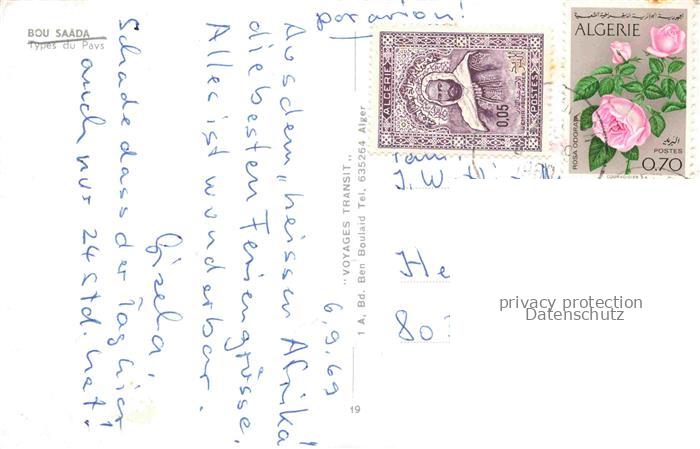 BOU SAÂDA
Types du Pays
par avion!
6.9.69
Aus dem "heissen Afrika"
die besten Feriengrüsse.
Alles ist wunderbar.
Gisela.
Schade dass der Tag hier
auch nur 24 Std. hat!
"VOYAGES TRANSIT"
1 A, Bd. Ben Boulaid Tel, 635264 Alger
19
ALGERIE
POSTES
0,05
ALGERIE
ROSA ODORATA
POSTES
البريد
0.70
J. W
He
80
privacy protection
Datenschutz